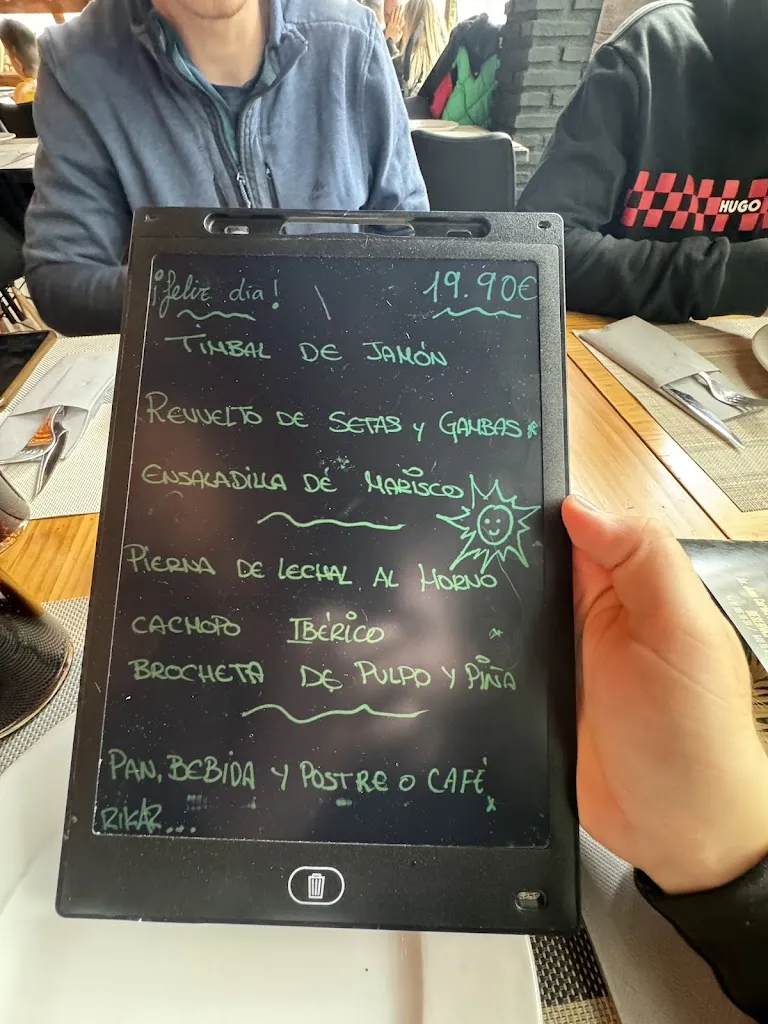 ¡feliz día! 19.90€
TIMBAL DE JAMÓN
REVUELTO DE SETAS y GAMBAS
ENSALADILLA DE MARISCO
PIERNA DE LECHAL AL HORNO
CACHOPO IBÉRICO
BROCHETA DE PULPO Y PIÑA
PAN, BEBIDA Y POSTRE O CAFÉ
RIKAR...
HUGO